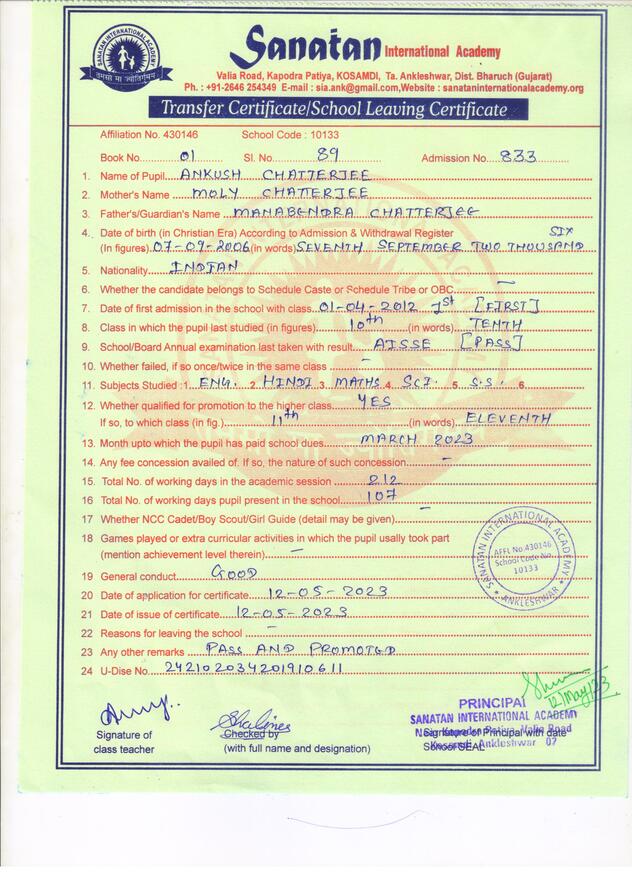 SANATAN INTERNATIONAL ACADEMY
तमसो मा ज्योतिर्गमय
Sanatan International Academy
Valia Road, Kapodra Patiya, KOSAMDI, Ta. Ankleshwar, Dist. Bharuch (Gujarat)
Ph. : +91-2646 254349 E-mail : sia.ank@gmail.com,Website : sanataninternationalacademy.org
Transfer Certificate/School Leaving Certificate
Affiliation No. 430146 School Code : 10133
Book No. 01 Sl. No. 89 Admission No. 833
1. Name of Pupil ANKUSH CHATTERJEE
2. Mother's Name MOLY CHATTERJEE
3. Father's/Guardian's Name MANABENDRA CHATTERJEE
4. Date of birth (in Christian Era) According to Admission & Withdrawal Register SIX
(In figures). 07-09-2006 (in words) SEVENTH SEPTEMBER TWO THOUSAND
5. Nationality INDIAN
6. Whether the candidate belongs to Schedule Caste or Schedule Tribe or OBC —
7. Date of first admission in the school with class 01-04-2012 Ist [FIRST]
8. Class in which the pupil last studied (in figures) 10th (in words) TENTH
9. School/Board Annual examination last taken with result AISSE [PASS]
10. Whether failed, if so once/twice in the same class —
11. Subjects Studied :1 ENG. 2. HINDI 3. MATHS 4. SCI. 5. S.S. 6.
12. Whether qualified for promotion to the higher class YES
If so, to which class (in fig.) 11th (in words) ELEVENTH
13. Month upto which the pupil has paid school dues. MARCH 2023
14. Any fee concession availed of. If so, the nature of such concession —
15. Total No. of working days in the academic session 212
16. Total No. of working days pupil present in the school 107
17 Whether NCC Cadet/Boy Scout/Girl Guide (detail may be given) —
18 Games played or extra curricular activities in which the pupil usally took part
(mention achievement level therein) —
19 General conduct GOOD
20 Date of application for certificate 12-05-2023
21 Date of issue of certificate 12-05-2023
22 Reasons for leaving the school —
23 Any other remarks PASS AND PROMOTED
24 U-Dise No. 242102034201910611
SANATAN INTERNATIONAL ACADEMY
AFFL No.430146
School Code No.
10133
* ANKLESHWAR *
12/May/23
PRINCIPAL
SANATAN INTERNATIONAL ACADEMY
Signature of Principal with date
Valia Road
Ankleshwar 07
School SEAL
Signature of
class teacher
Checked by
(with full name and designation)